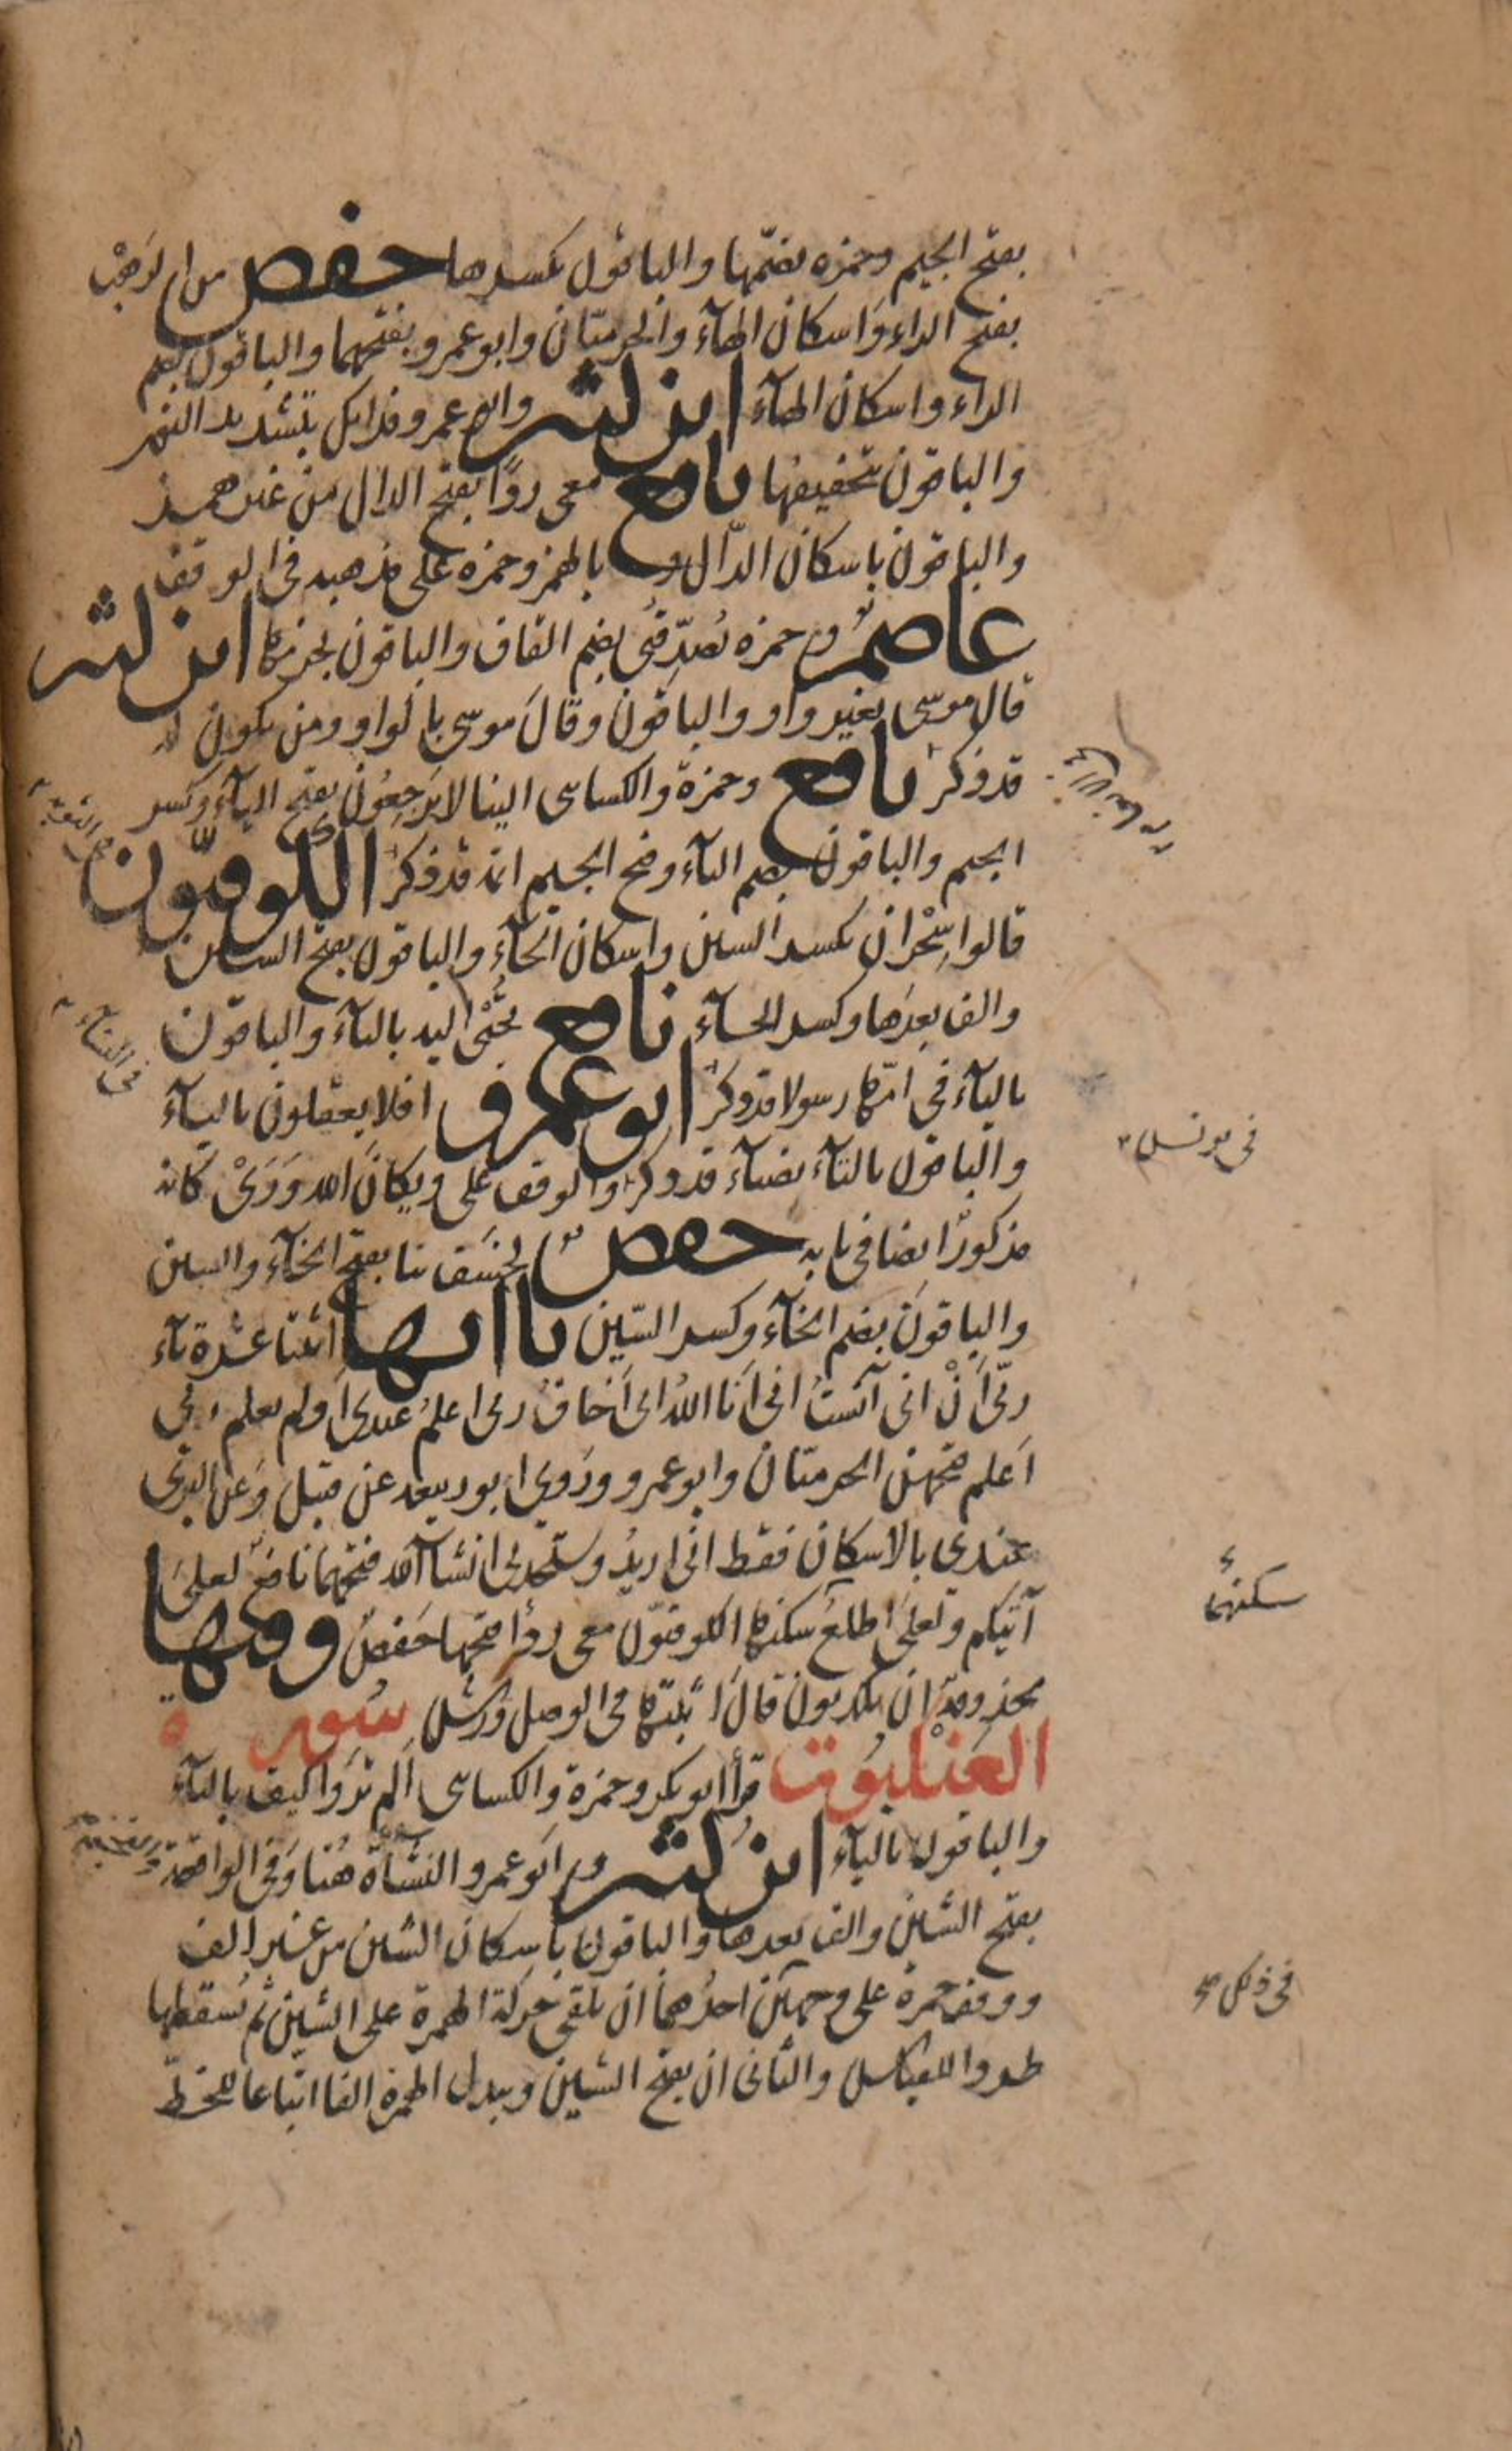 بفتح الجيم وحمزه بضمّها والباقون بكسرها حفص من الرهْب
بفتح الراء واسكان الهآء والحرميّان وابو عمرو بفتحهما والباقون بضم
الراء واسكان الهآء ابن كثير وابو عمرو فذانك بتشديد النون
والباقون بتخفيفها نافع معى ردًا بفتح الدال من غير همز
والباقون باسكان الدّال وبالهمز وحمزه على مذهبه فى الوقف
عاصم وحمزه يُصدِّقُنى بضم القاف والباقون بجزمها ابن كثير
قال موسى بغير واو والباقون وقالَ موسى بالواو ومن يكون له
قد ذكر نافع وحمزة والكساىى الينا لا يَرجِعُون بفتح اليآء وكسر
الجيم والباقون بضم اليآء وفتح الجيم ائمة قد ذكر الكوفيّون
قالوا سِحْران بكسر السين واسكان الحآء والباقون بفتح السين
والف بعدها وكسر الحآء نافع تُجْبَى اليه بالتآء والباقون
باليآء فى امّها رسولا قد ذكر ابو عمرو افلا يعقلون باليآء
والباقون بالتآء بضيآء قد ذكر والوقف على ويكانَّ الله وَوَيْكانه
مذكورٌ ايضا فى بابه حفص لخَسَف بنا بفتح الخآء والسين
والباقونَ بضم الخآء وكسر السّين ياآتها اثنتا عشرة يآء
ربّى اَنْ انى آنستُ انى اَنا اللهُ انى اَخاف ربى اعلمُ عندى اَولم يعلم ربى
اَعلم فتحهن الحرميّان وابو عمرو ورَوى ابو ربيعه عن قنبل وَعن البزى
عندى بالاسكان فقط انى اريدُ وستجدنى ان شآ الله فتحهما نافع لعلىَ
آتيكم ولعلىَ اطلع سكنها الكوفيّون معى ردأ فتحها حَفصٌ وفيها
محذوفة ان يكذبون قال اثبتها فى الوصل ورش سُورة
العَنْكبُوت قرأ ابو بكر وحمزة والكساىى اَلم تَرَوا كيف بالتآء
والباقون باليآء ابن كثير وابو عمرو النَشآءَة هُنا وَفى الواقعة
بفتح الشين والف بعدها والباقون باسكان الشين من غير الف
ووقف حمزة على وجهين احدُهما ان يلقى حركة الهمزة على الشين ثم يُسقطها
طردا للقياس والثانى ان يفتح الشين ويبدل الهمزة الفا اتباعا للخطّ
فى يونس
سكنهما
فى ذلك